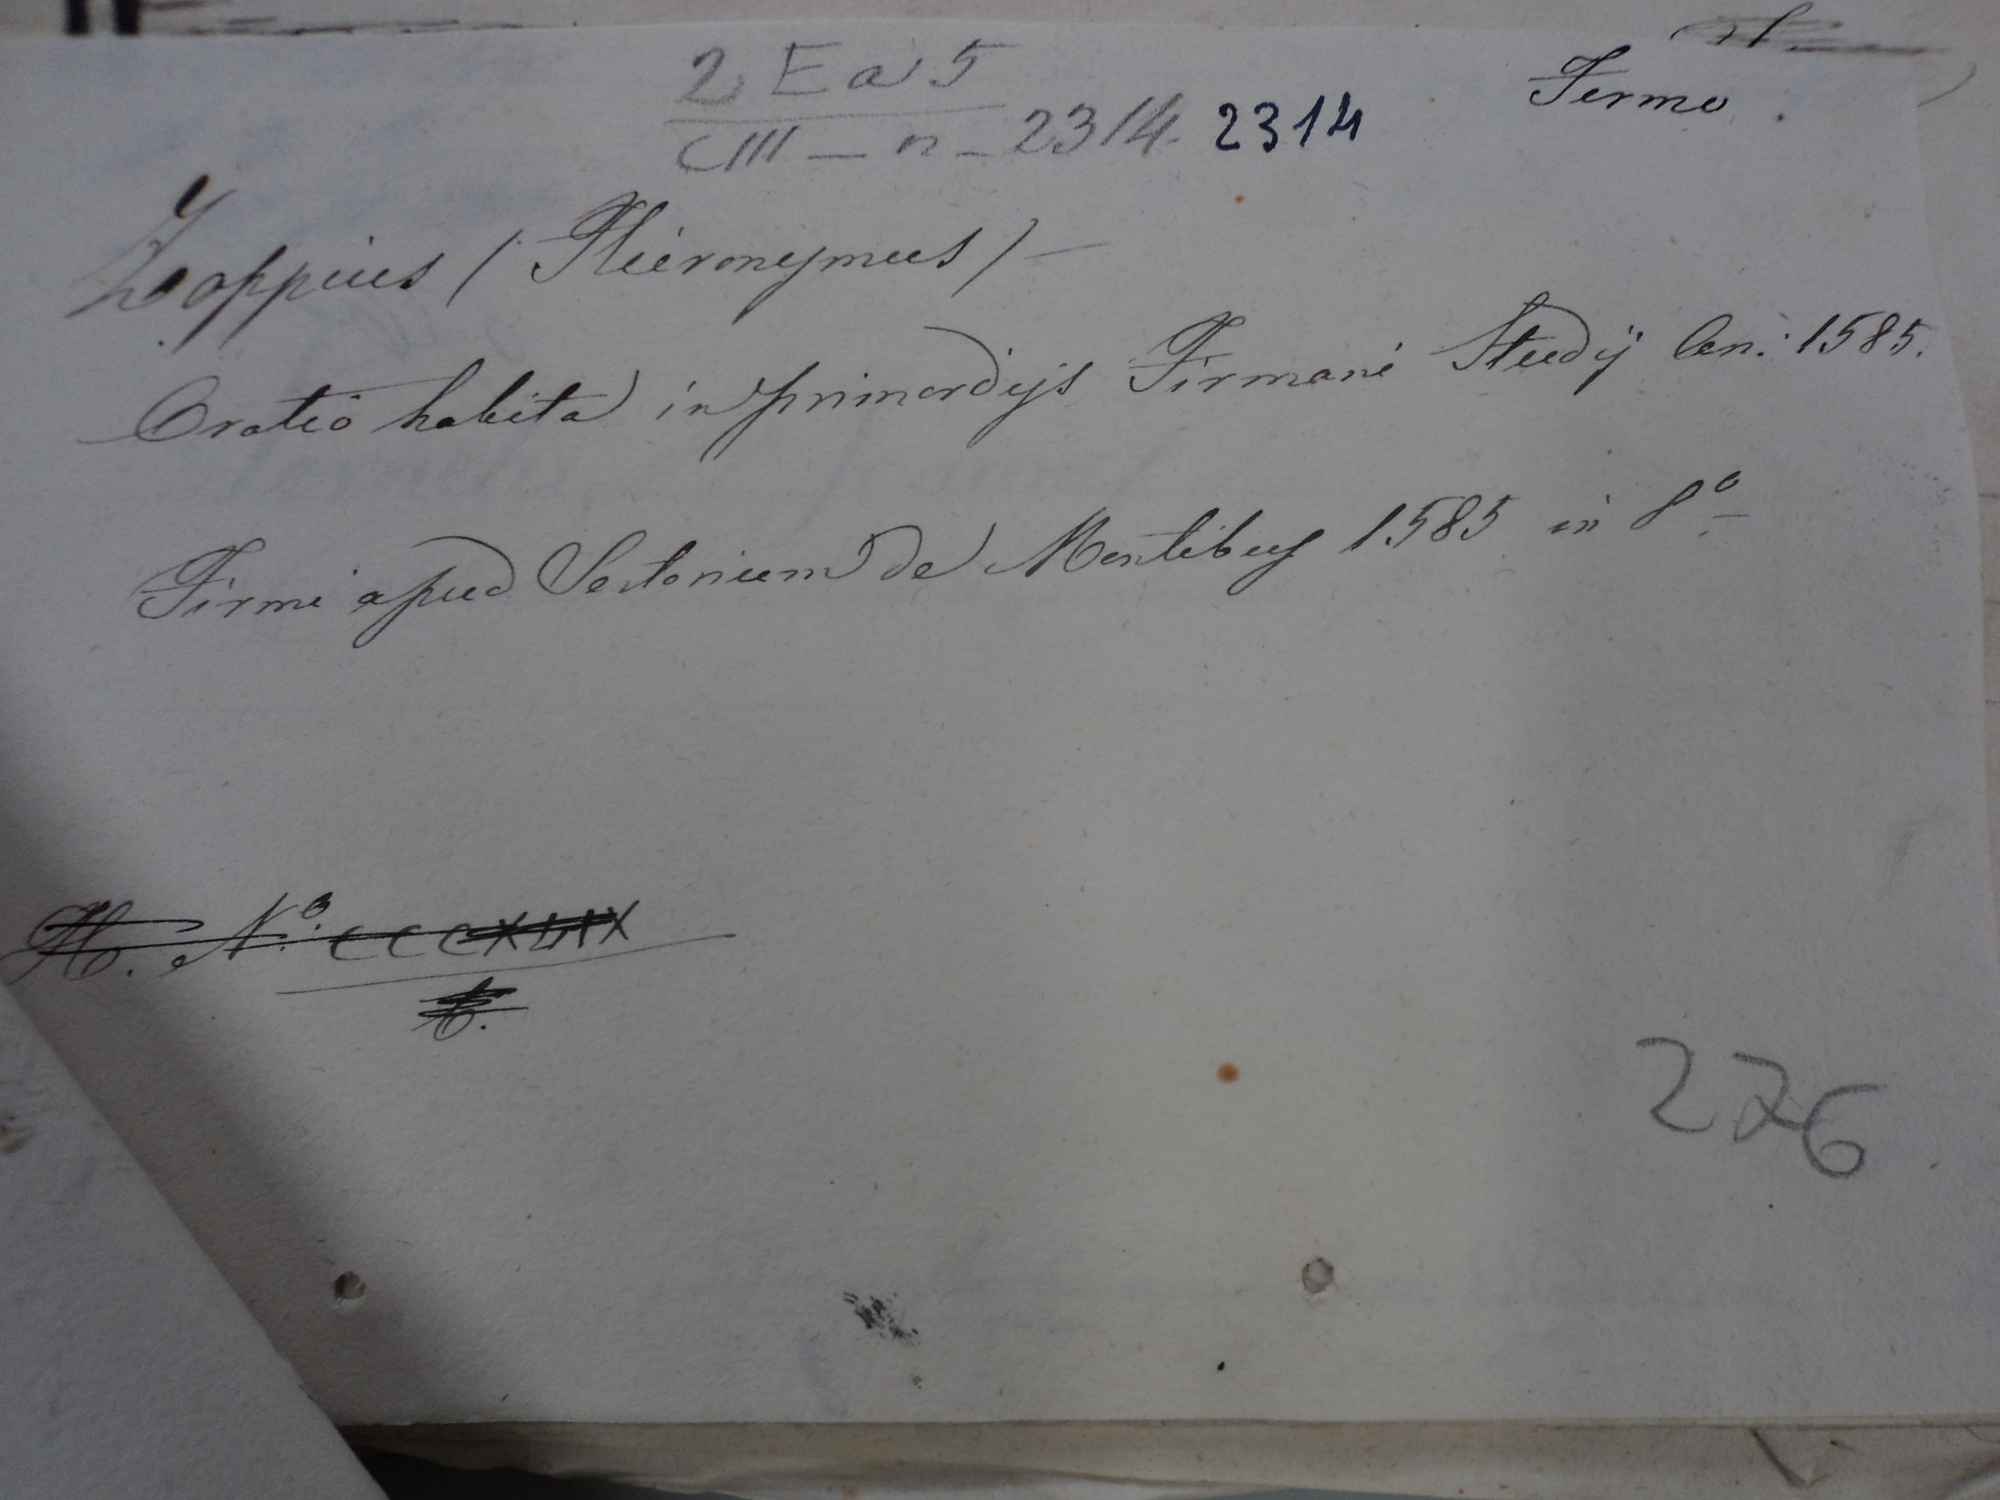 2 Ea 5
CIII - n - 2314. 2314
Fermo.
Zoppius (Hieronymus) -
Oratio habita in primordijs Firmani Studij An: 1585.
Firmi apud Sertorium de Montibus 1585 in 8º
N.º CCCXLIX
226